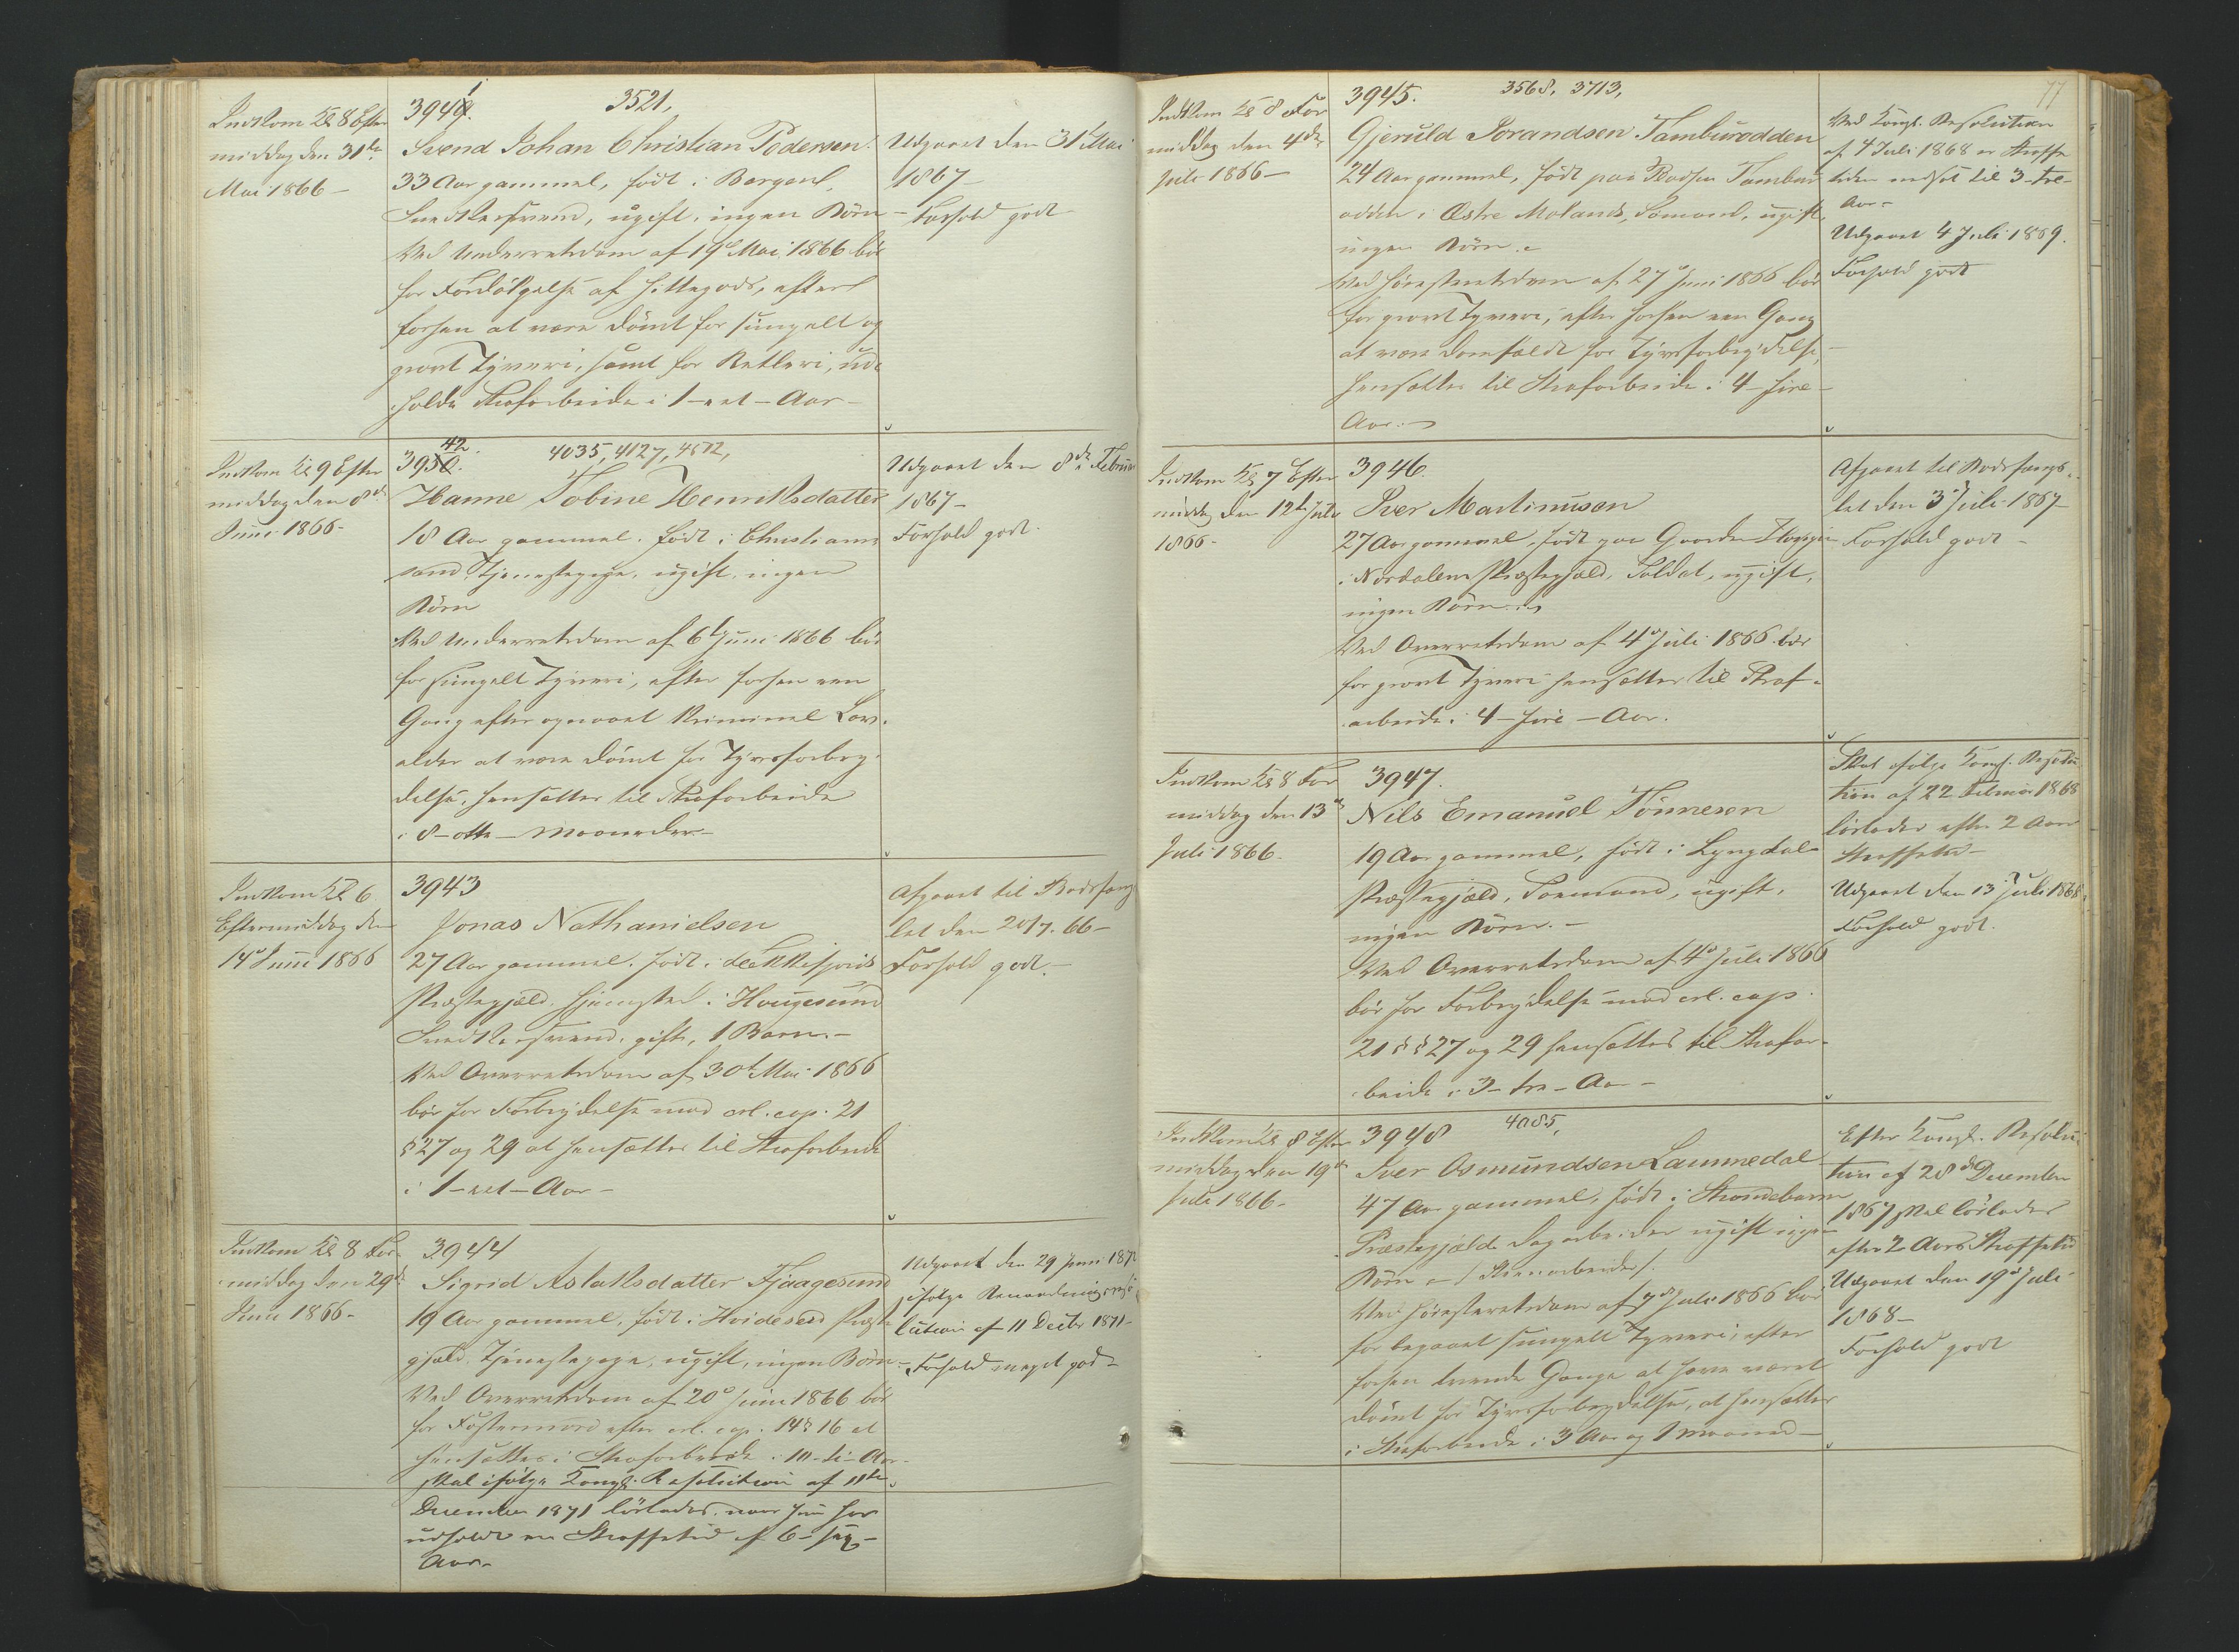 Indkom Kl 8 Efter
middag den 31te
Mai 1866 -
3941. 3521,
Svend Johan Christian Pedersen
33 Aar gammel, født i Bergen,
Snedkersvend, ugift, ingen Børn -
Ved Underretsdom af 19de Mai 1866 bør
for Fordølgelse af Hittegods, efter
forhen at være dømt for simpelt og
grovt Tyveri, samt for Betleri, ud-
holde Strafarbeide i 1 - eet - Aar -
Udgaaet den 31 Mai
1867 -
Forhold godt
Indkom Kl 9 Efter
middag den 8de
Juni 1866 -
3942. 4035, 4127, 4572,
Hanne Tobine Henriksdatter
18 Aar gammel, født i Christian-
sand, Tjenestepige, ugift, ingen
Børn
Ved Underretsdom af 6te Juni 1866 bør
for simpelt Tyveri, efter forhen een
Gang efter opnaaet kriminel Lav-
alder at være dømt for Tyvsforbry-
delse, hensættes til Strafarbeide
i 8 - otte - Maaneder -
Udgaaet den 8de Februar
1867 -
Forhold godt.
Indkom Kl 6
Eftermiddag den
14de Juni 1866
3943
Jonas Nathanielsen
27 Aar gammel, født i Lekkefjords
Præstegjæld, hjemsted i Hougesund
Snedkersvend, gift, 1 Barn -
Ved Overretsdom af 30te Mai 1866
bør for Forbrydelse mod crl. cap. 21
§ 27 og 29 at hensættes til Strafarbeide
i 1 - eet - Aar -
Afgaaet til Bodsfæng
let den 20/7. 66 -
Forhold godt. -
Indkom Kl 8 For-
middag den 29de
Juni 1866 -
3944
Sigrid Aslaksdatter Fjaagesund
19 Aar gammel, født i Hvidesed Præste
gjæld, Tjenestepige, ugift, ingen Børn -
Ved Overretsdom af 20de Juni 1866 bør
for Fostermord efter crl. cap. 14 § 16 at
hensættes i Strafarbeide i 10 - ti - Aar -
skal ifølge Kongl. Resolution af 11te
December 1871 løslades, naar hun har
udholdt en Straffetid af 6 - sex -
Aar -
Udgaaet den 29 Juni 1872
ifølge Benaadningsreso
lution af 11 Decbr 1871 -
Forhold meget godt -
77
Indkom Kl 8 For
middag den 4de
Juli 1866 -
3945. 3568, 3713,
Gjeruld Torandsen Tamburodden
24 Aar gammel, født paa Pladsen Tambur
odden i Østre Molands, Sømand, ugift,
ingen Børn. -
Ved Høiesteretsdom af 27de Juni 1866 bør
for grovt Tyveri, efter forhen een Gang
at være domfældt for Tyvsforbrydelse,
hensættes til Strafarbeide i 4 - fire -
Aar. -
Ved Kongl. Resolution
af 4 Juli 1868 er Straffe
tiden nedsat til 3 - tre -
Aar -
Udgaaet 4 Juli 1869.
Forhold godt
Indkom Kl 7 Efter
middag den 12te Juli
1866 -
3946.
Iver Martinusen
27 Aar gammel, født paa Gaarden
i Nordalens Præstegjæld, Soldat, ugift,
ingen Børn. -
Ved Overretsdom af 4de Juli 1866 bør
for grovt Tyveri hensættes til Straf-
arbeide i 4 - fire - Aar.
Afgaaet til Bodsfængs-
let den 3 Juli 1867
Forhold godt -
Indkom Kl 8 For
middag den 13de
Juli 1866.
3947.
Nils Emanuel Tønnesen
19 Aar gammel, født i Lyngdal
Præstegjæld, Sømand, ugift,
ingen Børn. -
Ved Overretsdom af 4de Juli 1866
bør for Forbrydelse mod crl. cap.
21 §§ 27 og 29 hensættes til Strafar-
beide i 3 - tre - Aar -
Skal ifølge Kongl. Resolu
tion af 22 Februar 1868
løslades efter 2 Aars
Straffetid -
Udgaaet den 13 Juli 1868.
Forhold godt.
Indkom Kl 8 Efter
middag den 19de
Juli 1866 -
3948 4085,
Iver Osmundsen Laumedal
47 Aar gammel, født i Strandebarm
Præstegjæld, Dagarbeider, ugift, ingen
Børn - / Steenarbeider /.
Ved Høiesteretsdom af 7de Juli 1866 bør
for begaaet simpelt Tyveri, efter
forhen trende Gange at have været
dømt for Tyvsforbrydelse, at hensættes
i Strafarbeide i 3 Aar og 1 Maaned -
Efter Kongl. Resolu-
tion af 28de December
1867 skal løslades
efter 2 Aars Straffetid
Udgaaet den 19de Juli
1868 -
Forhold godt